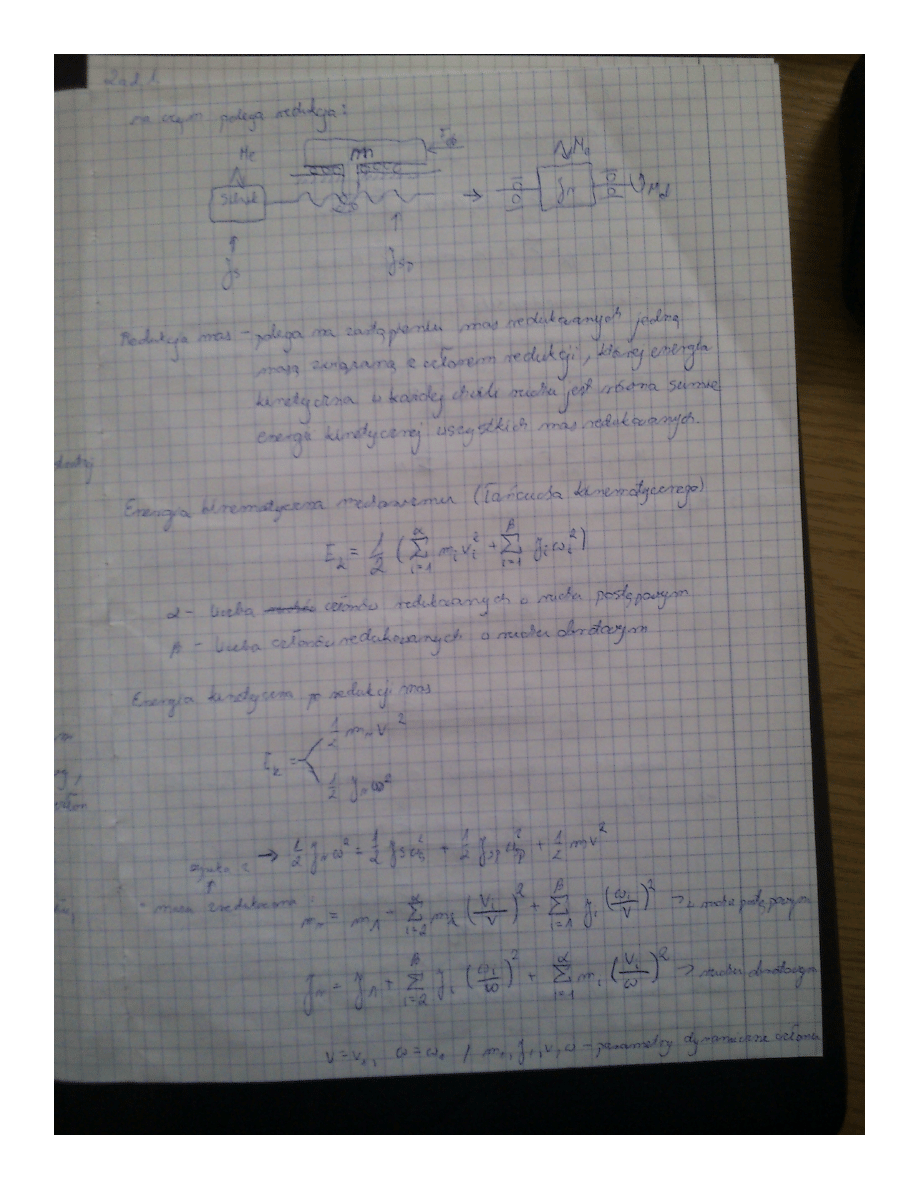 Zad. 1.
na czym polega redukcja:
Mc
m
Silnik
Js
Jśr
Redukcja mas - polega na zastąpieniu mas redukowanych jedną
masą związaną z członem redukcji, której energia
kinetyczna w każdej chwili ruchu jest równa sumie
energii kinetycznej wszystkich mas redukowanych.
Energia kinematyczna mechanizmu (łańcucha kinematycznego)
E_k = 1/2 (∑_{i=1}^{α} m_i v_i^2 + ∑_{i=1}^{β} J_i ω_i^2)
α - liczba członów redukowanych o ruchu postępowym
β - liczba członów redukowanych o ruchu obrotowym
Energia kinetyczna po redukcji mas
1/2 m_r v^2
E_k =
1/2 J_r ω^2
→ 1/2 J_r ω^2 = 1/2 J_s ω_s^2 + 1/2 J_śr ω_śr^2 + 1/2 m v^2
- masa zredukowana :
m_r = m_1 + ∑_{i=2}^{α} m_i (v_i/v)^2 + ∑_{i=1}^{β} J_i (ω_i/v)^2 → w ruchu postępowym
J_r = J_1 + ∑_{i=2}^{β} J_i (ω_i/ω)^2 + ∑_{i=1}^{α} m_i (v_i/ω)^2 → ruchu obrotowym
v = v_r, ω = ω_r / m_r, J_r, v, ω - parametry dynamiczne członu